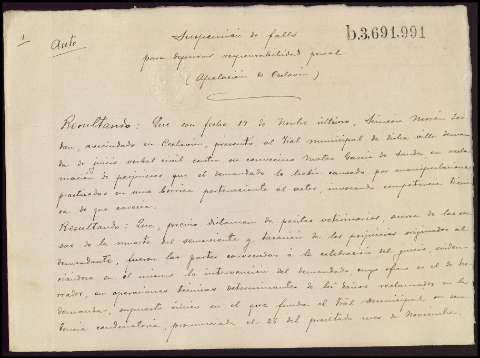 1
Auto
b.3.691.991
Suspensión de fallo
para depurar responsabilidad penal
(Apelación de Ceclavín)
Resultando: Que con fecha 17 de Novbre último, Simeón Morán
dan, avecindado en Ceclavín, presentó al Tbal municipal de dicha villa deman-
da de juicio verbal civil contra su convecino Mateo García de Sande en recla-
mación de perjuicios que el demandado le había causado por manipulaciones
practicadas en una borrica perteneciente al actor, invocando competencia técni-
ca de que carecía.
Resultando: Que, previo dictamen de peritos veterinarios, acerca de las cau-
sas de la muerte del semoviente y tasación de los perjuicios originados al
demandante, fueron las partes convocadas á la celebración del juicio, eviden-
ciándose en él mismo la intervención del demandado, cuyo oficio es el de he-
rrador, en operaciones técnicas determinantes de los daños reclamados en la
demanda, supuesto único en el que funda el Tbal municipal su sen-
tencia condenatoria, pronunciada el 25 del pasado mes de Noviembre.